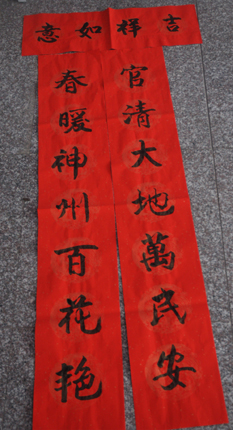 吉祥如意
官清大地萬民安
春暖神州百花艳